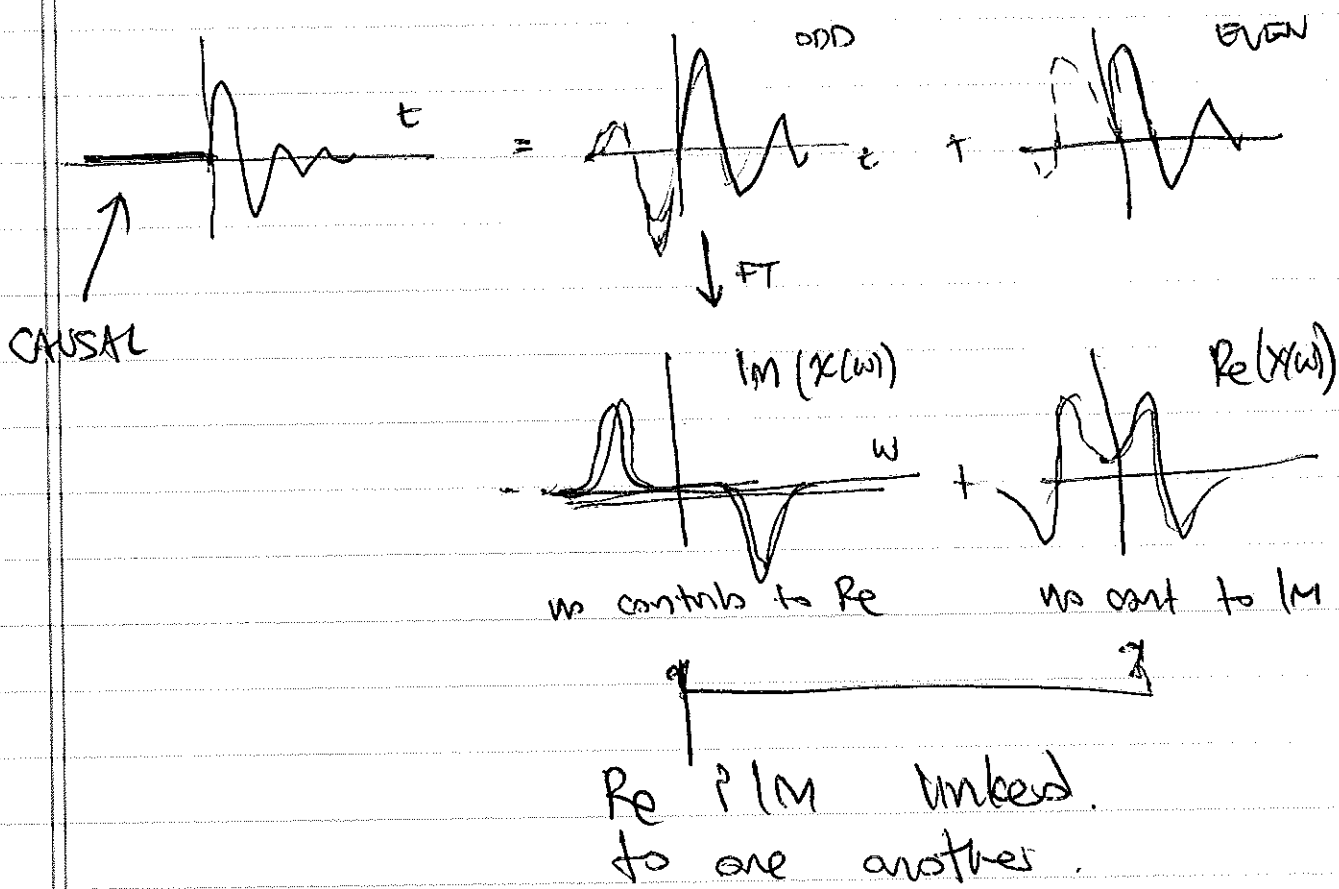 ODD
EVEN
t
=
t
+
↓ FT
CAUSAL
Im (χ(ω))
Re(χ(ω))
ω
+
no contrib to Re
no cont to IM
Re & IM linked.
to one another.